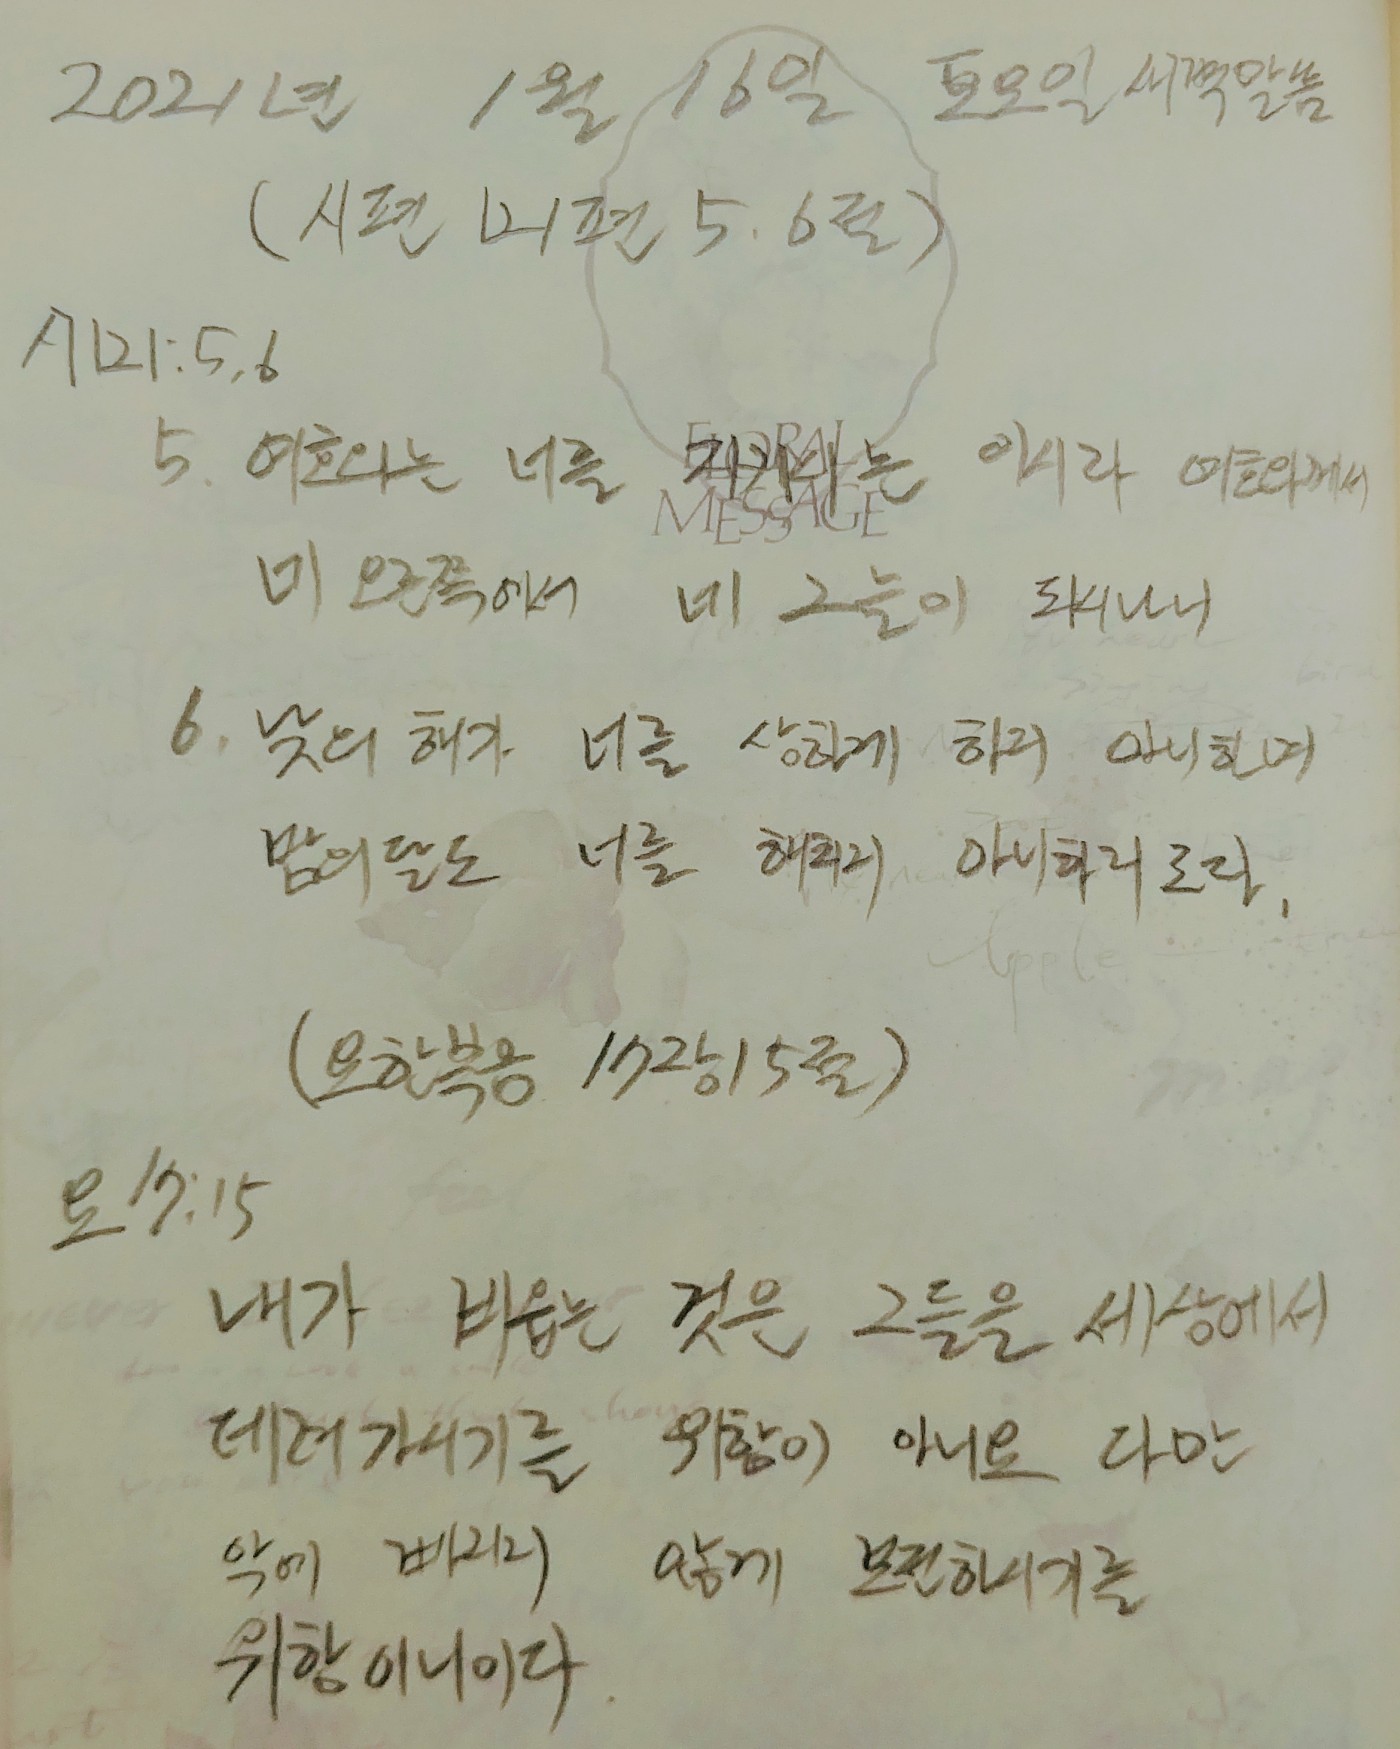 2021년 1월 16일 토요일 새벽말씀
(시편 121편 5. 6절)
시121:5,6
5. 여호와는 너를 지키시는 이시라 여호와께서
FLORAL
MESSAGE
네 오른쪽에서 네 그늘이 되시나니
6. 낮의 해가 너를 상하게 하리 아니하며
밤의 달도 너를 해치리 아니하리로다.
(요한복음 17장 15절)
요 17:15
내가 비옵는 것은 그들을 세상에서
데려가시기를 위함이 아니요 다만
악에 빠지지 않게 보전하시기를
위함이니이다.
Apple